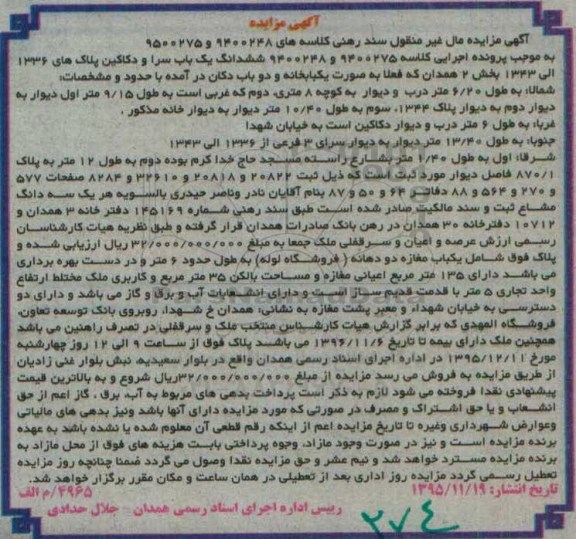 آگهی مزایده
آگهی مزایده مال غیر منقول سند رهنی کلاسه های ۹۴۰۰۲۴۸ و ۹۵۰۰۲۷۵
به موجب پرونده اجرایی کلاسه ۹۵۰۰۲۷۵ و ۹۴۰۰۲۴۸ ششدانگ یک باب سرا و دکاکین پلاک های ۱۳۳۶
الی ۱۳۴۳ بخش ۲ همدان که فعلا به صورت یکبابخانه و دو باب دکان در آمده با حدود و مشخصات:
شمالا: به طول ۶/۲۰ متر درب و دیوار به کوچه ۸ متری، دوم که غربی است به طول ۹/۱۵ متر اول دیوار به
دیوار دوم به دیوار پلاک ۱۳۴۴، سوم به طول ۱۰/۴۰ متر دیوار به دیوار خانه مذکور .
غربا: به طول ۶ متر درب و دیوار دکاکین است به خیابان شهدا
جنوبا: به طول ۱۳/۴۰ متر دیوار به دیوار سرای ۳ فرعی از ۱۳۳۶ الی ۱۳۴۳
شرقا: اول به طول ۱/۴۰ متر بشارع راسته مسجد حاج خدا کرم بوده دوم به طول ۱۲ متر به پلاک
۸۷۰/۱ فاصل دیوار مورد ثبت است که ذیل ثبت ۲۰۸۲۲ و ۲۰۸۱۸ و ۳۲۶۱۰ و ۸۲۸۴ صفحات ۵۷۷
و ۲۷۰ و ۵۶۴ و ۸۸ دفاتر ۶۴ و ۵۰ و ۸۷ بنام آقایان نادر وناصر حیدری بالسویه هر یک سه دانگ
مشاع ثبت و سند مالکیت صادر شده است طبق سند رهنی شماره ۱۴۵۱۶۹ دفتر خانه ۳ همدان و
۱۰۷۱۲ دفترخانه ۳۰ همدان در رهن بانک صادرات همدان قرار گرفته و طبق نظریه هیات کارشناسان
رسمی ارزش عرصه و اعیان و سرقفلی ملک جمعا به مبلغ ۳۲/۰۰۰/۰۰۰/۰۰۰ ریال ارزیابی شده و
پلاک فوق شامل یکباب مغازه دو دهانه ( فروشگاه لوله) به طول حدود ۶ متر و در دست بهره برداری
می باشد دارای ۱۳۵ متر مربع اعیانی مغازه و مساحت بالکن ۳۵ متر مربع و کاربری ملک مختلط ارتفاع
واحد تجاری ۵ متر با قدمت قدیم ساز است و دارای انشعابات آب و برق و گاز می باشد و دارای دو
دسترسی به خیابان شهداء و معبر پشت مغازه به نشانی: همدان خ شهدا، روبروی بانک توسعه تعاون،
فروشگاه المهدی که برابر گزارش هیات کارشناس منتخب ملک و سرقفلی در تصرف راهنین می باشد
همچنین ملک دارای بیمه تا تاریخ ۱۳۹۶/۱۱/۶ می باشد پلاک فوق از ساعت ۹ الی ۱۲ روز چهارشنبه
مورخ ۱۳۹۵/۱۲/۱۱ در اداره اجرای اسناد رسمی همدان واقع در بلوار سعیدیه، نبش بلوار غنی زادیان
از طریق مزایده به فروش می رسد مزایده از مبلغ ۳۲/۰۰۰/۰۰۰/۰۰۰ریال شروع و به بالاترین قیمت
پیشنهادی نقدا فروخته می شود لازم به ذکر است پرداخت بدهی های مربوط به آب، برق ، گاز اعم از حق
انشعاب و یا حق اشتراک و مصرف در صورتی که مورد مزایده دارای آنها باشد ونیز بدهی های مالیاتی
وعوارض شهرداری وغیره تا تاریخ مزایده اعم از اینکه رقم قطعی آن معلوم شده یا نشده باشد به عهده
برنده مزایده است و نیز در صورت وجود مازاد، وجوه پرداختی بابت هزینه های فوق از محل مازاد به
برنده مزایده مسترد خواهد شد و نیم عشر و حق مزایده نقدا وصول می گردد ضمنا چنانچه روز مزایده
تعطیل رسمی گردد مزایده روز اداری بعد از تعطیلی در همان ساعت و مکان مقرر برگزار خواهد شد.
تاریخ انتشار: ۱۳۹۵/۱۱/۱۹ ۴۹۶۵/م الف
رییس اداره اجرای اسناد رسمی همدان - جلال حدادی
۲۷۴